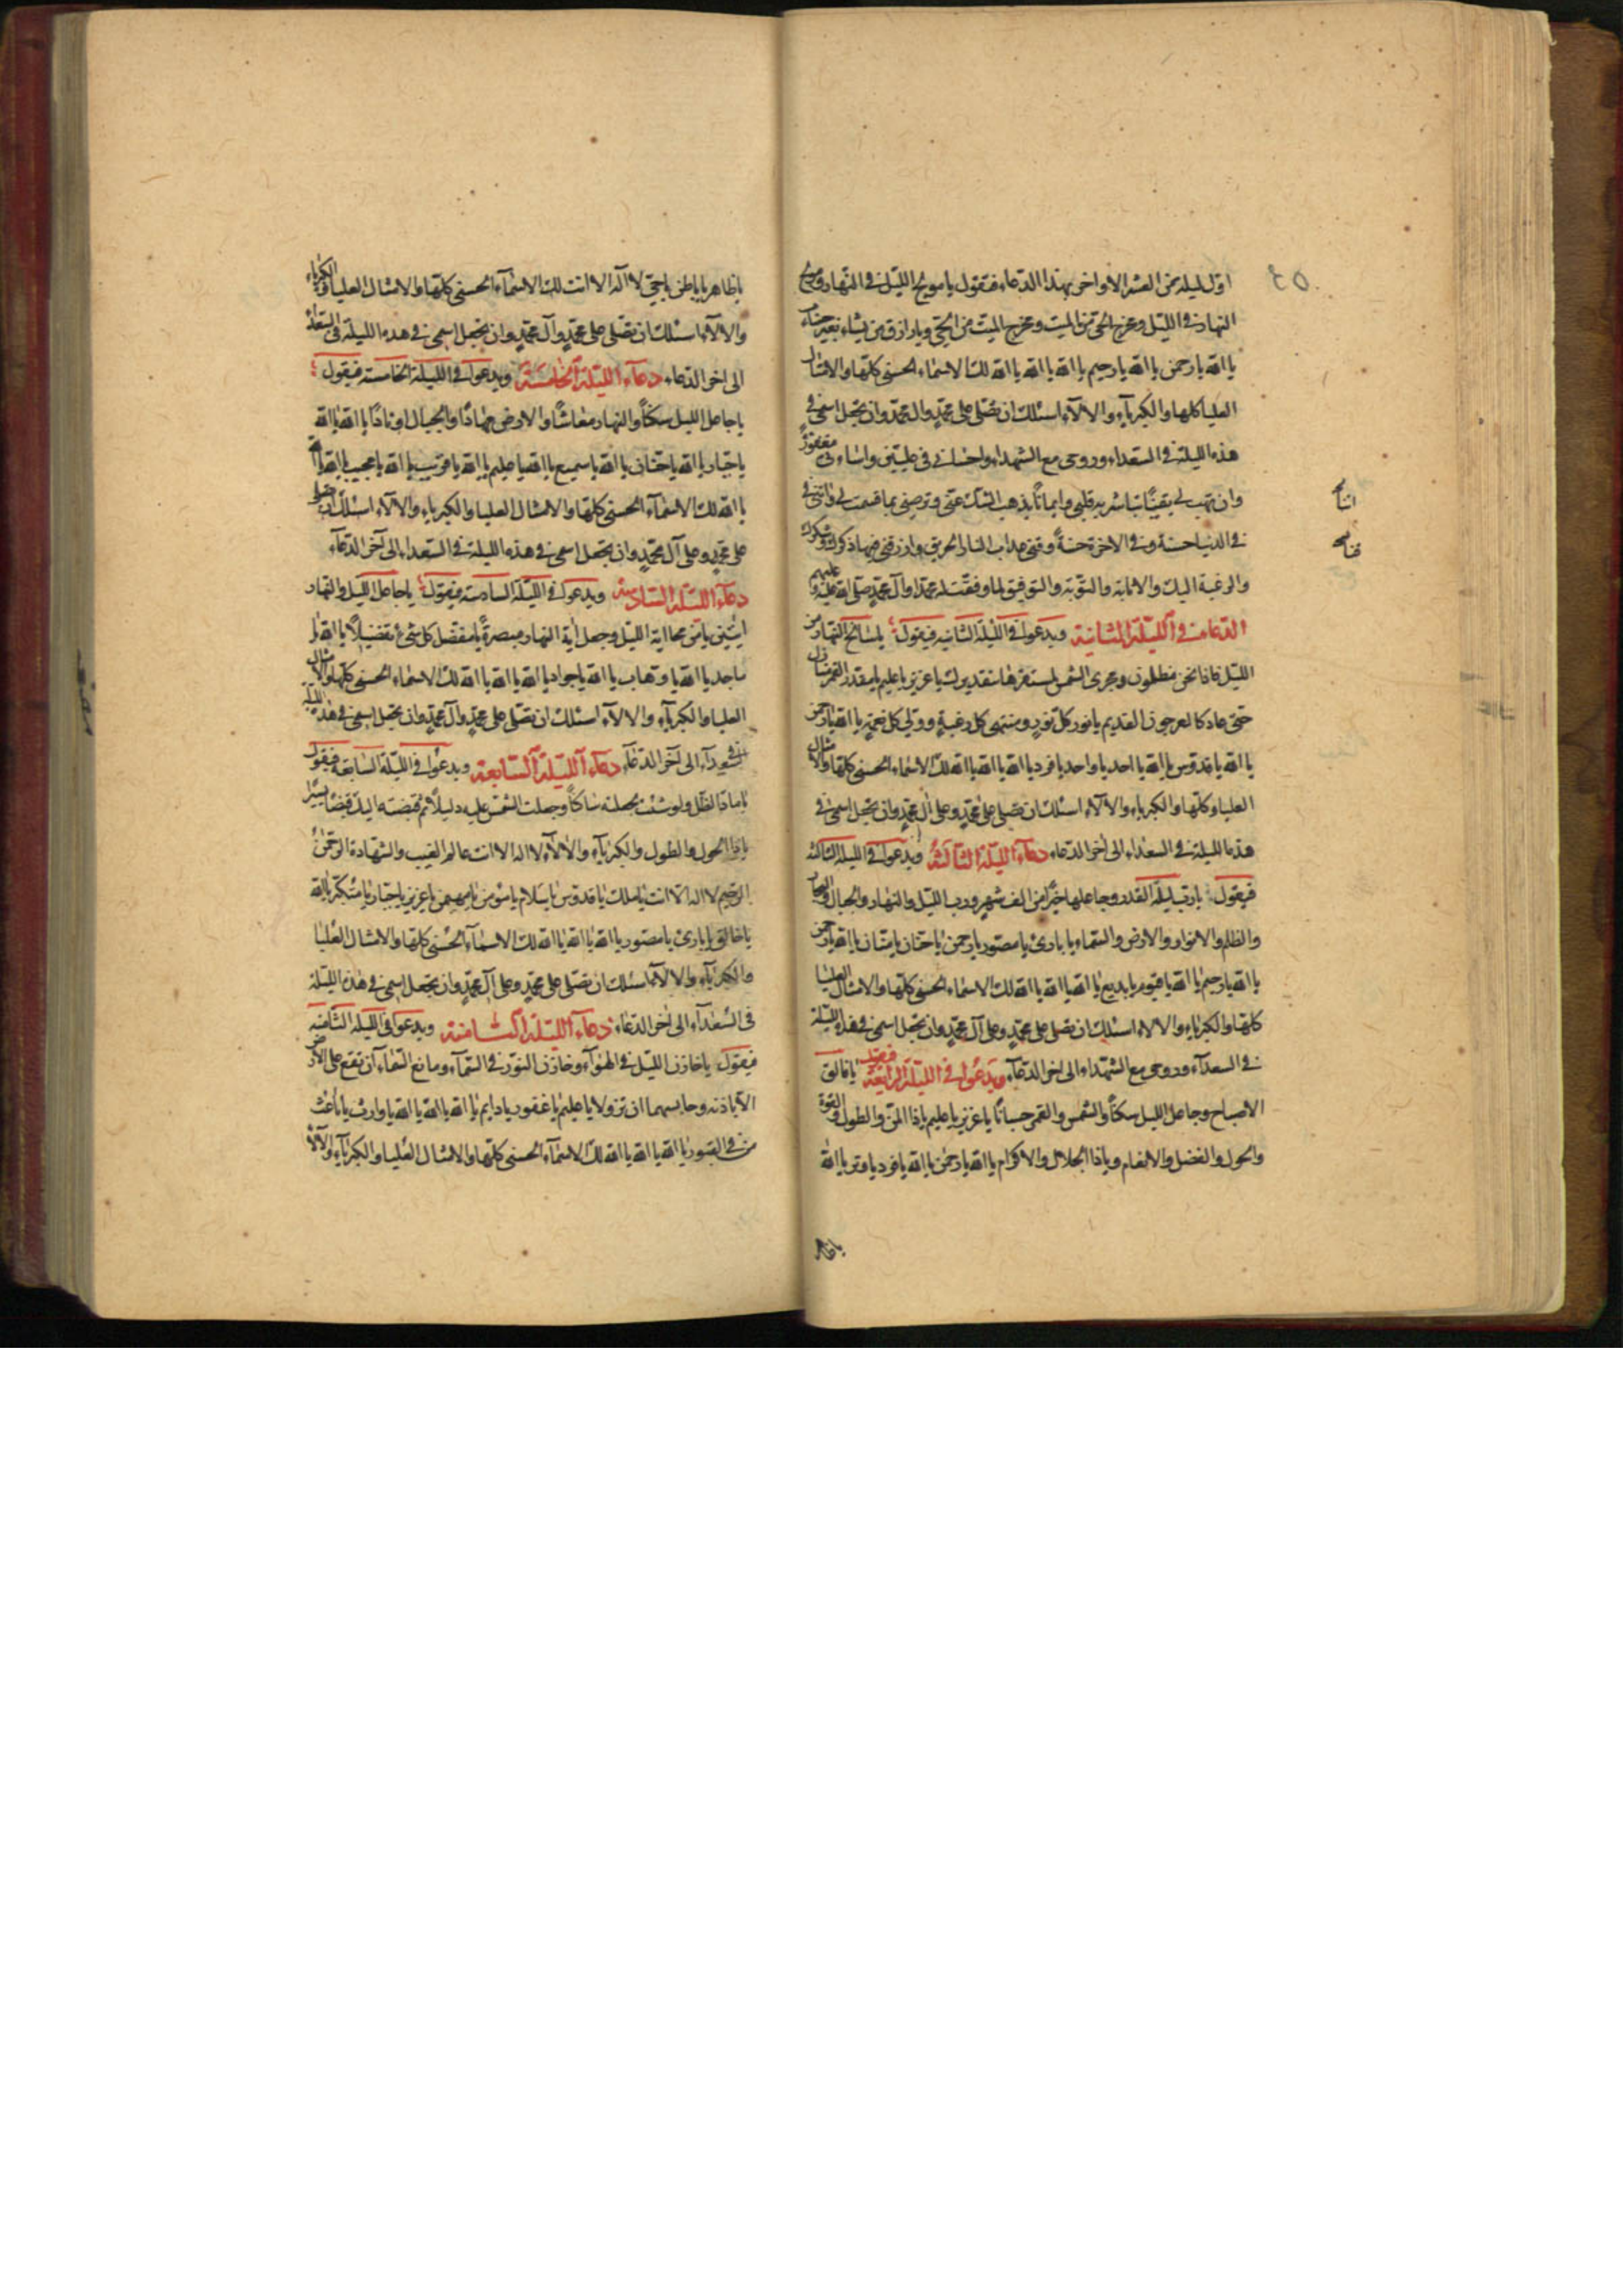 اول ليلة من العشر الاواخر بهذا الدعاء فتقول يا مولج الليل في النهار ومولج
النهار في الليل ومخرج الحى من الميت ومخرج الميت من الحى ويا رازق من يشاء بغير حساب
يا الله يا رحمن يا الله يا رحيم يا الله يا الله يا الله لك الاسماء الحسنى كلها والامثال
العليا كلها والكبرياء والالاء اسئلك ان تصلى على محمد وال محمد وان تجعل اسمى فى
هذه الليلة فى السعداء وروحى مع الشهداء واحسانى فى عليين واساءتى مغفورة
وان تهب لى يقينًا تباشر به قلبى وايمانًا يذهب الشك عنى وترضينى بما قسمت لى واتنى
فى الدنيا حسنة وفى الاخرة حسنةً وقنى عذاب النار الحريق وارزقنى فيها ذكرك وشكرك
والرغبة اليك والانابة والتوبة والتوفيق لما وفقت له محمدا وآل محمد صلى الله عليه وعليهم
الدعاء فى الليلة الثانية ويدعوا فى الليلة الثانية فيقول يا سالخ النهار من
الليل فاذا نحن مظلمون ومجرى الشمس لمستقرها بتقديرك يا عزيز يا عليم يا مقدر القمر منازل
حتى عاد كالعرجون القديم يا نور كل نور ومنتهى كل رغبة وولى كل نعمة يا الله يا رحمن
يا الله يا قدوس يا الله يا احد يا واحد يا فرد يا الله يا الله يا الله لك الاسماء الحسنى كلها والامثال
العليا وكلها والكبرياء والالاء اسئلك ان تصلى على محمد وعلى آل محمد وان تجعل اسمى فى
هذه الليلة فى السعداء الى اخر الدعاء دعاء الليلة الثالثة ويدعوا فى الليلة الثالثة
فيقول يا رب ليلة القدر وجاعلها خيرًا من الف شهر ورب الليل والنهار والجبال والبحار
والظلم والانوار والارض والسماء يا بارئ يا مصور يا رحمن يا حنان يا منان يا الله يا رحمن
يا الله يا رحيم يا الله يا قيوم يا بديع يا الله يا الله يا الله لك الاسماء الحسنى كلها والامثال العليا
كلها والكبرياء والالاء اسئلك ان تصلى على محمد وعلى آل محمد وان تجعل اسمى فى هذه الليلة
فى السعداء وروحى مع الشهداء الى اخر الدعاء ويدعوا فى الليلة الرابعة فيقول يا فالق
الاصباح وجاعل الليل سكنًا والشمس والقمر حسبانًا يا عزيز يا عليم يا ذا المن والطول والقوة
والحول والفضل والانعام ويا ذا الجلال والاكرام يا الله يا رحمن يا الله يا فرد يا وتر يا الله
يا ظاهر
يا ظاهر يا باطن يا حى لا اله الا انت لك الاسماء الحسنى كلها والامثال العليا والكبرياء
والالاء اسئلك ان تصلى على محمد وآل محمد وان تجعل اسمى فى هذه الليلة فى السعداء
الى اخر الدعاء دعاء الليلة الخامسة ويدعوا فى الليلة الخامسة فيقول
يا جاعل الليل سكنًا والنهار معاشًا والارض مهادًا والجبال اوتادًا يا الله يا الله
يا جبار يا الله يا حنان يا الله يا سميع يا الله يا عليم يا الله يا قريب يا الله يا مجيب يا الله يا الله
يا الله لك الاسماء الحسنى كلها والامثال العليا والكبرياء والالاء اسئلك ان تصلى
على محمد وعلى آل محمد وان تجعل اسمى فى هذه الليلة فى السعداء الى آخر الدعاء
دعاء الليلة السادسة ويدعوا فى الليلة السادسة فيقول يا جاعل الليل والنهار
ايتين يا من محا اية الليل وجعل اية النهار مبصرةً يا مفضل كل شئ تفضيلًا يا الله يا
ماجد يا الله يا وهاب يا الله يا جواد يا الله يا الله يا الله لك الاسماء الحسنى كلها والامثال
العليا والكبرياء والالاء اسئلك ان تصلى على محمد وآل محمد وان تجعل اسمى فى هذه الليلة
فى السعداء الى آخر الدعاء دعاء الليلة السابعة ويدعوا فى الليلة السابعة فيقول
يا ماد الظل ولو شئت لجعلته ساكنًا وجعلت الشمس عليه دليلًا ثم قبضته اليك قبضًا يسيرًا
يا ذا الحول والطول والكبرياء والالاء لا اله الا انت عالم الغيب والشهادة الرحمن
الرحيم لا اله الا انت يا ملك يا قدوس يا سلام يا مؤمن يا مهيمن يا عزيز يا جبار يا متكبر يا الله
يا خالق يا بارئ يا مصور يا الله يا الله يا الله لك الاسماء الحسنى كلها والامثال العليا
والكبرياء والالاء اسئلك ان تصلى على محمد وعلى آل محمد وان تجعل اسمى فى هذه الليلة
فى السعداء الى اخر الدعاء دعاء الليلة الثامنة ويدعوا فى الليلة الثامنة
فيقول يا خازن الليل فى الهواء وخازن النور فى السماء ومانع السماء ان تقع على الارض
الا باذنه وحابسهما ان تزولا يا عليم يا غفور يا دايم يا الله يا الله يا الله يا وارث يا باعث
من فى القبور يا الله يا الله يا الله لك الاسماء الحسنى كلها والامثال العليا والكبرياء والالاء